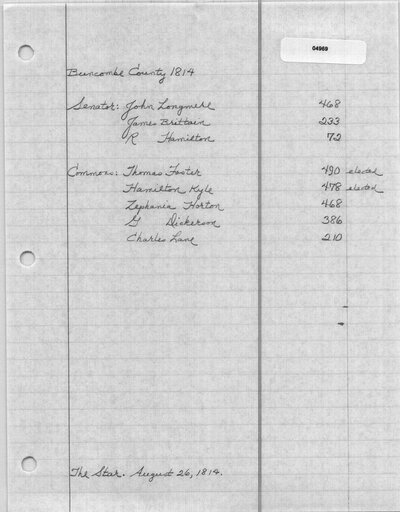 04969
Buncombe County 1814
Senator: John Longmire 468
James Brittain 233
R Hamilton 72
Commons: Thomas Foster 490 elected
Hamilton Kyle 478 elected
Zephania Horton 468
G Dickerson 386
Charles Lane 210
The Star. August 26, 1814.